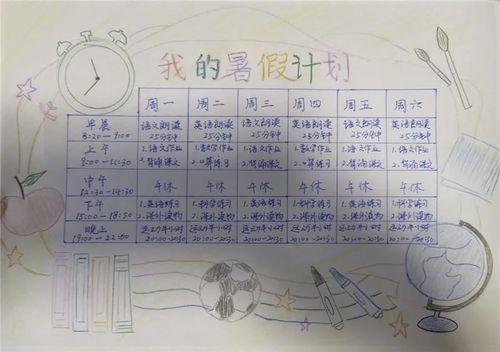 我的暑假计划
周一 周二 周三 周四 周五 周六
早晨 语文朗读 英语朗读 语文朗读 英语朗读 语文朗读 英语朗读
8:20-9:00 25分钟 25分钟 25分钟 25分钟 25分钟 25分钟
上午 1.语文作业 1.数学作业 1.语文作业 1.数学作业 1.语文作业 1.数学作业
9:00-11:30 2.背诵课文 2.口算练习 2.背诵课文 2.口算练习 2.背诵课文 2.背诵课文
中午 午休 午休 午休 午休 午休 午休
12:30-14:30
下午 1.英语练习 1.科学练习 1.英语练习 1.科学练习 1.英语练习 1.科学练习
15:00-18:50 2.课外读物 2.课外读物 2.课外读物 2.课外读物 2.课外读物 2.课外读物
晚上 运动半小时 运动半小时 运动半小时 运动半小时 运动半小时 运动半小时
19:00-22:00 20:00-20:30 20:00-20:30 20:00-20:30 20:00-20:30 20:00-20:30 20:00-20:30